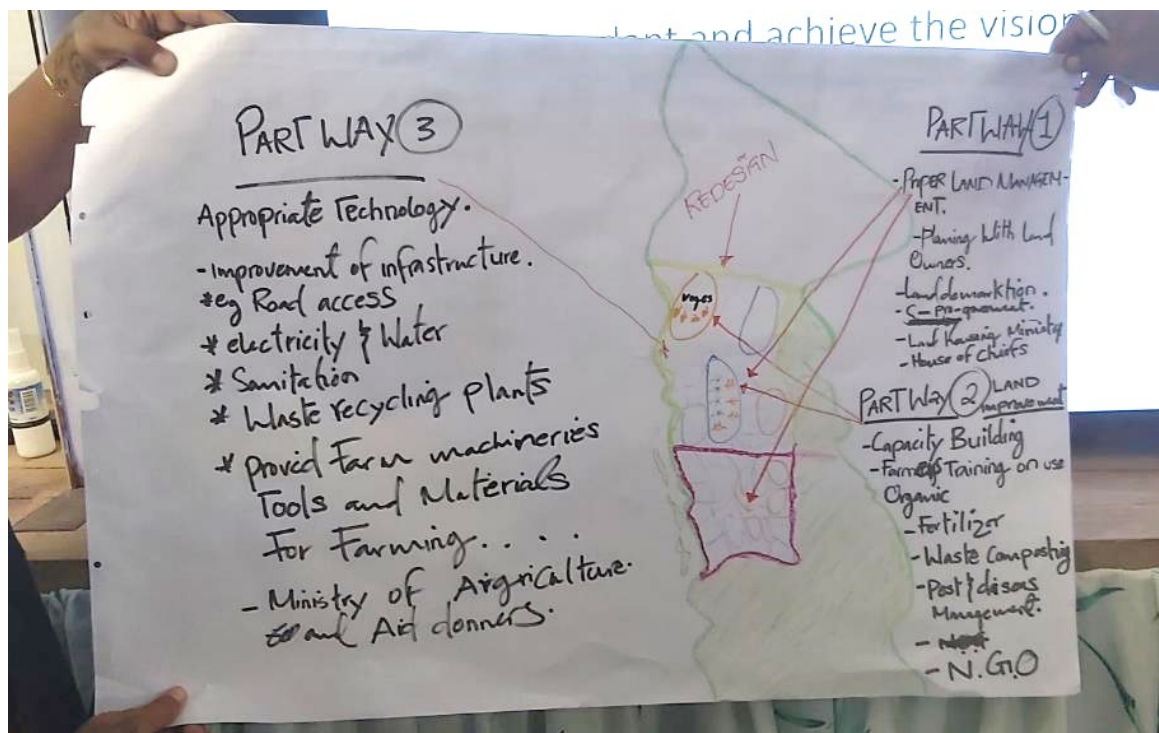 and achieve the vision
PARTWAY 3
Appropriate Technology.
- Improvement of infrastructure.
* eg Road access
* electricity & Water
* Sanitation
* Waste recycling plants
* Provid Farm machineries
Tools and Materials
For Farming....
- Ministry of Airgriculture.
and Aid donners.
REDESIGN
PARTWAY 1
- PROPER LAND MANAGEM-
ENT.
- Planing With Land
Owners.
- Land demarktion.
- Land Housing Ministry
- House of Chiefs
PARTWAY 2 LAND
Improvement
- Capacity Building
- Farmers Training on use
Organic
- Fertilizer
- Waste Composting
- Pest & diseas
Management.
- N.G.O